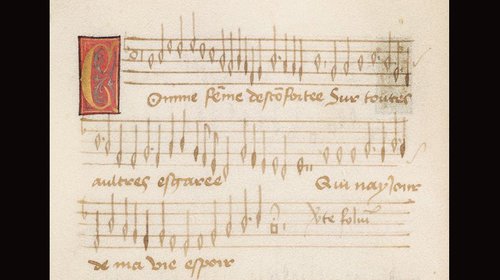 Comme fẽme descõfortee Sur toutes
aultres esgaree Qui nay Jour
de ma vie espoir